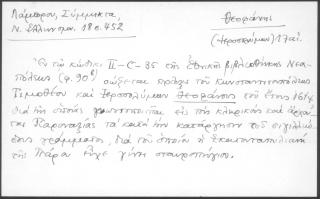 Λάμπρου, Σύμμικτα,
Ν. Ἑλληνομν. 18ος. 452
Θεοφάνης
(Ἱεροσολύμων) 17 αἰ.
Ἐν τῷ κώδικι II-C-35 τῆς ἐθνικῆς βιβλιοθήκης Νεα-
πόλεως (φ. 90β) σώζεται πρᾶξις τοῦ Κωνσταντινουπόλεως
Τιμοθέου καὶ Ἱεροσολύμων Θεοφάνους τοῦ ἔτους 1614
διὰ τῆς ὁποίας γνωστοποιεῖται εἰς τοὺς κληρικοὺς καὶ ἄρχοντας
Παροναξίας τὰ κατὰ τὴν κατάργησιν τοῦ σιγιλλιώ-
δους γράμματος, διὰ τοῦ ὁποίου ἡ Ἑκατονταπυλιανὴ
τῆς Πάρου εἶχε γίνει σταυροπήγιον.